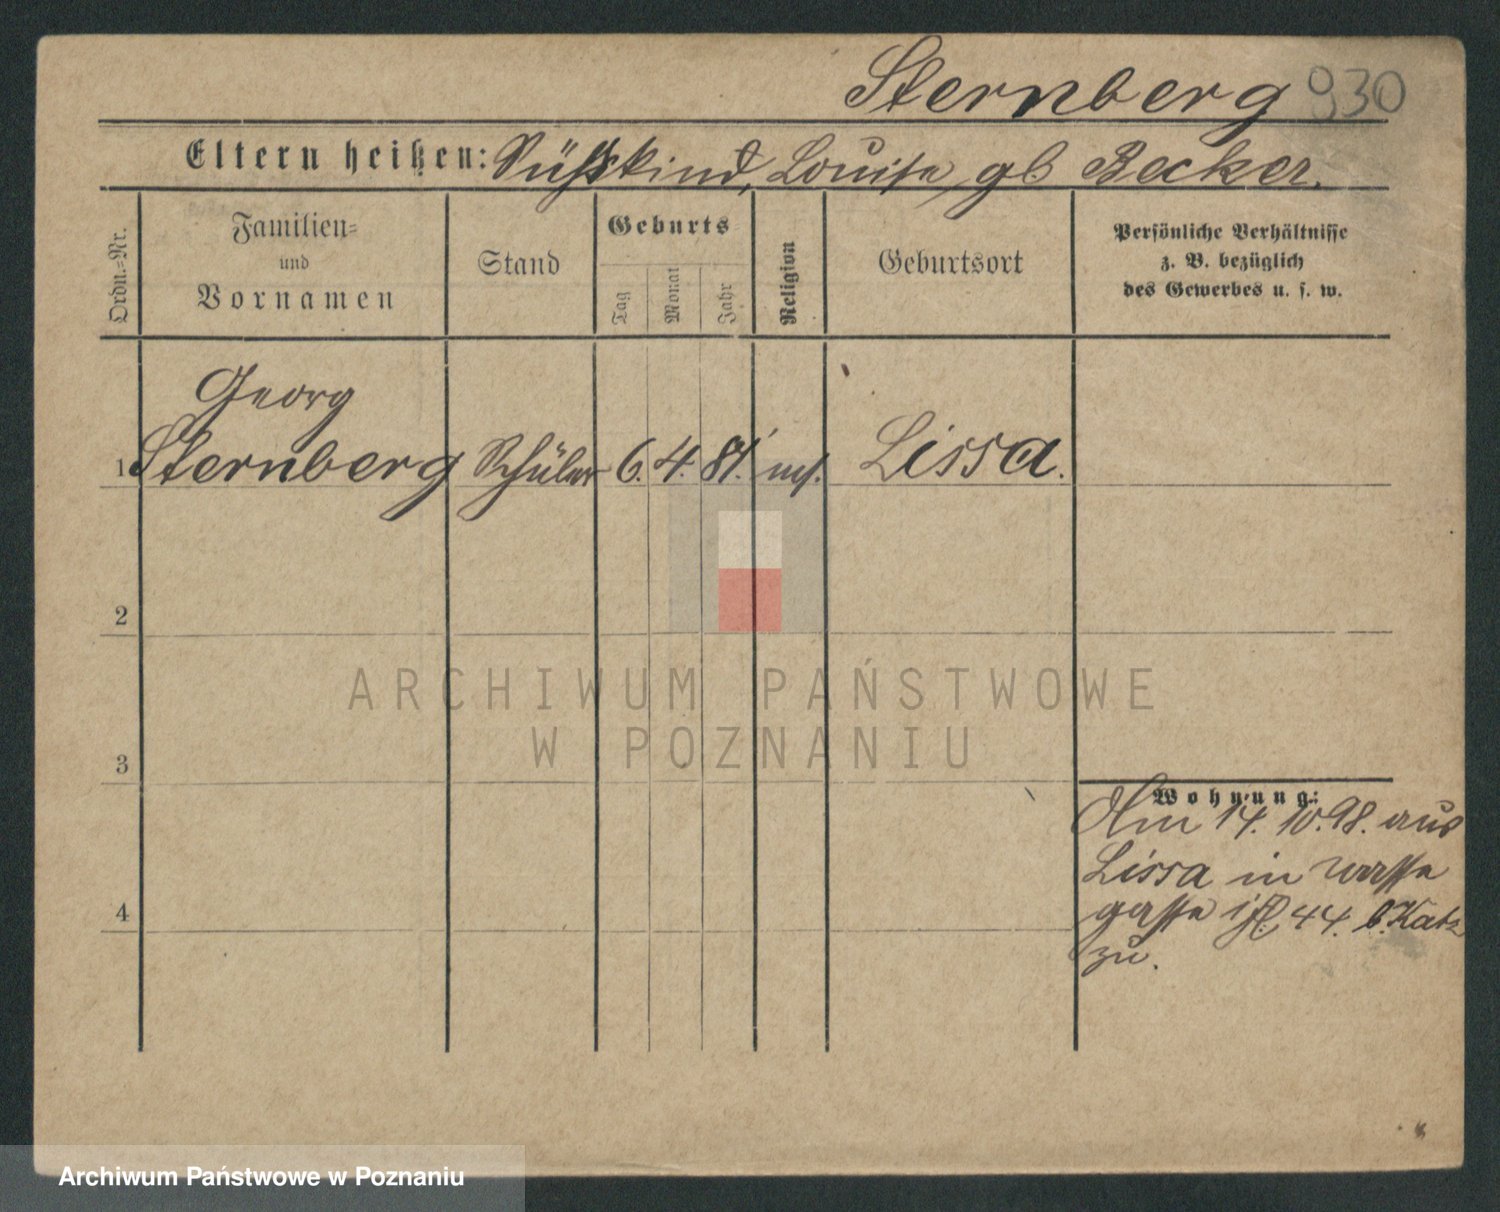 Sternberg 930
Eltern heißen: Süßskind, Louise gb Becker.
Ordn.=Nr.
Familien=
und
Vornamen
Stand
Geburts
Tag
Monat
Jahr
Religion
Geburtsort
Persönliche Verhältnisse
z. B. bezüglich
des Gewerbes u. s. w.
Georg
1 Sternberg Schüler 6. 4. 81. mos. Lissa.
2
3
4
Wohnung:
Am 14. 10. 98. aus
Lissa in Wasser
gasse 44. b. Katz
zu.
ARCHIWUM PAŃSTWOWE
W POZNANIU
Archiwum Państwowe w Poznaniu